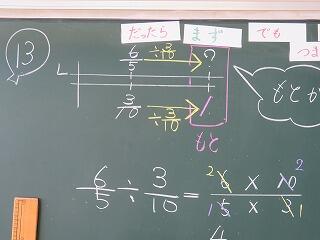 だったら まず でも つま
13
6/5 ÷3/10 ?
L
3/10 ÷3/10 1
もと
もとが
6/5 ÷ 3/10 = 2 6 × 10 2 / 1 5 × 3 1
4